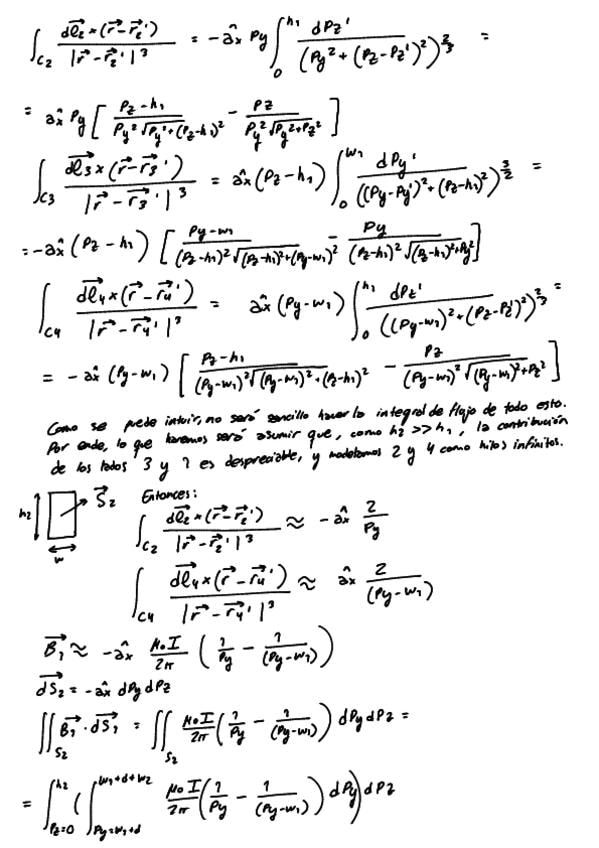 ∫_{C2} \vec{dl_2}×(\vec{r}-\vec{r_2}')/|\vec{r}-\vec{r_2}'|^3 = -\hat{a_x} Py ∫_0^{h_1} dPz'/(Py^2+(Pz-Pz')^2)^{2/3} =
= \hat{a_x} Py [ (Pz-h_1)/(Py^2 √(Py^2+(Pz-h_1)^2)) - Pz/(Py^2 √(Py^2+Pz^2)) ]
∫_{C3} \vec{dl_3}×(\vec{r}-\vec{r_3}')/|\vec{r}-\vec{r_3}'|^3 = \hat{a_x}(Pz-h_1) ∫_0^{w_1} dPy'/((Py-Py')^2+(Pz-h_1)^2)^{3/2} =
= -\hat{a_x}(Pz-h_1) [ (Py-w_1)/((Pz-h_1)^2 √((Pz-h_1)^2+(Py-w_1)^2)) - Py/((Pz-h_1)^2 √((Pz-h_1)^2+Py^2)) ]
∫_{C4} \vec{dl_4}×(\vec{r}-\vec{r_4}')/|\vec{r}-\vec{r_4}'|^3 = \hat{a_x}(Py-w_1) ∫_0^{h_1} dPz'/((Py-w_1)^2+(Pz-Pz')^2)^{2/3} =
= -\hat{a_x}(Py-w_1) [ (Pz-h_1)/((Py-w_1)^2 √((Py-w_1)^2+(Pz-h_1)^2)) - Pz/((Py-w_1)^2 √((Py-w_1)^2+Pz^2)) ]
Como se puede intuir, no será sencillo hacer la integral de flujo de todo esto.
Por ende, lo que haremos será asumir que, como h_2 >> h_1, la contribución
de los lados 3 y 1 es despreciable, y modelamos 2 y 4 como hilos infinitos.
h_2 \vec{S_2} w
Entonces:
∫_{C2} \vec{dl_2}×(\vec{r}-\vec{r_2}')/|\vec{r}-\vec{r_2}'|^3 ≈ -\hat{a_x} 2/Py
∫_{C4} \vec{dl_4}×(\vec{r}-\vec{r_4}')/|\vec{r}-\vec{r_4}'|^3 ≈ \hat{a_x} 2/(Py-w_1)
\vec{B_1} ≈ -\hat{a_x} μ_0 I/2π (1/Py - 1/(Py-w_1))
\vec{dS_2} = -\hat{a_x} dPy dPz
∬_{S_2} \vec{B_1}·\vec{dS_1} = ∬_{S_2} μ_0 I/2π (1/Py - 1/(Py-w_1)) dPy dPz =
= ∫_{Pz=0}^{h_2} (∫_{Py=w_1+d}^{w_1+d+w_2} μ_0 I/2π (1/Py - 1/(Py-w_1)) dPy) dPz